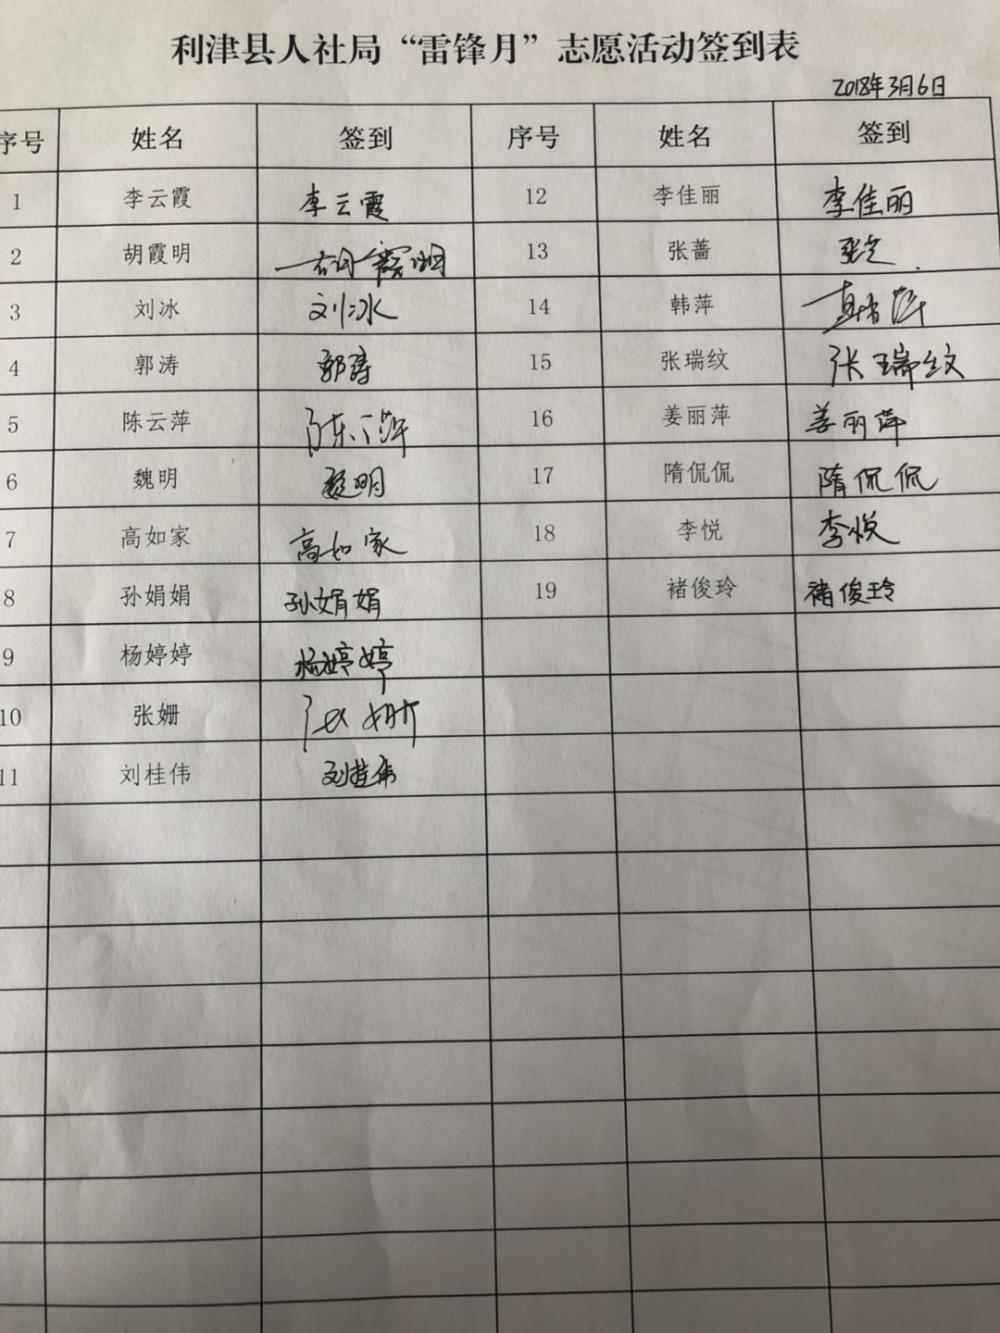 利津县人社局“雷锋月”志愿活动签到表
2018年3月6日
序号 姓名 签到 序号 姓名 签到
1 李云霞 李云霞 12 李佳丽 李佳丽
2 胡霞明 胡霞明 13 张蔷
3 刘冰 刘冰 14 韩萍 韩萍
4 郭涛 郭涛 15 张瑞纹 张瑞纹
5 陈云萍 陈云萍 16 姜丽萍 姜丽萍
6 魏明 魏明 17 隋侃侃 隋侃侃
7 高如家 高如家 18 李悦 李悦
8 孙娟娟 孙娟娟 19 褚俊玲 褚俊玲
9 杨婷婷 杨婷婷
10 张姗 张姗
11 刘桂伟 刘桂伟